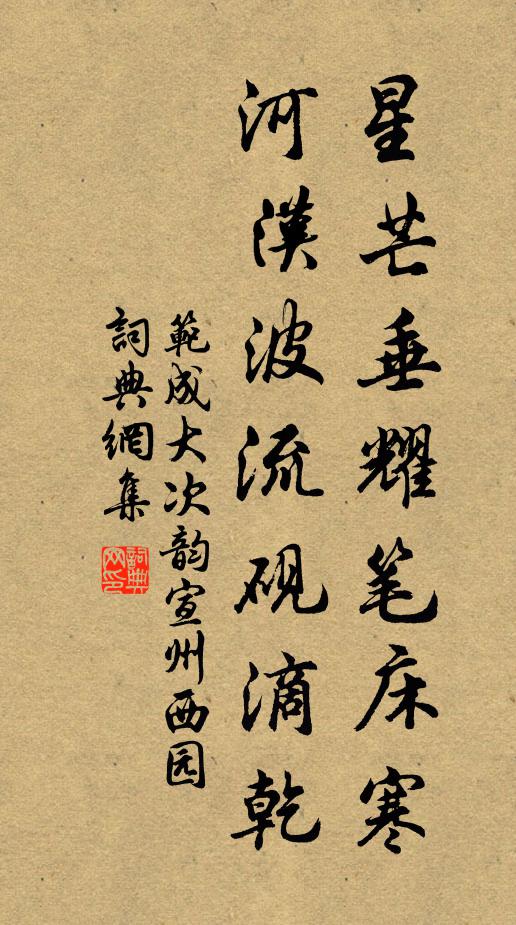 星芒垂耀笔床寒
河漢波流砚滴乾
範成大次韵宣州西园
詞典網集
詞典
网印